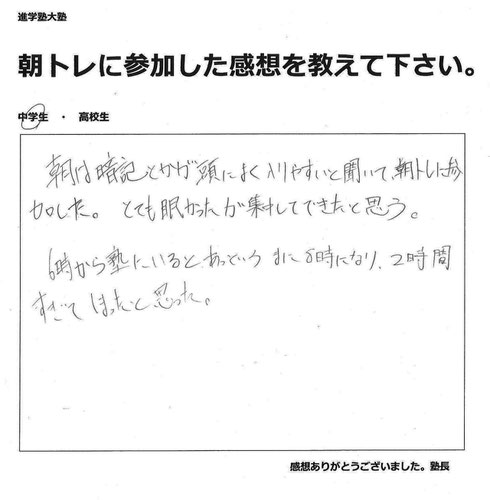 進学塾大塾
朝トレに参加した感想を教えて下さい。
中学生 ・ 高校生
朝は暗記とかが頭によく入りやすいと聞いて、朝トレに参
加した。 とても眠かったが集中してできたと思う。
6時から塾にいるとあっというまに8時になり、2時間
すぎて
思った。
感想ありがとうございました。塾長